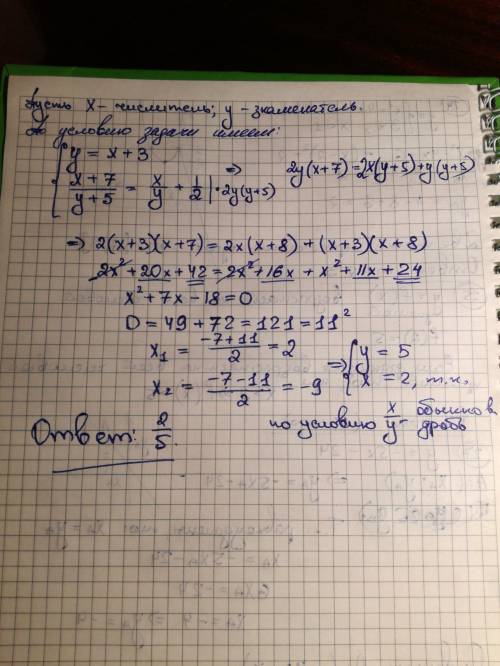 Пусть x - числитель; y - знаменатель.
По условию задачи имеем:
{ y = x + 3
{ (x + 7)/(y + 5) = x/y + 1/2 | · 2y(y+5) ⇒ 2y(x+7) = 2x(y+5) + y(y+5)
⇒ 2(x+3)(x+7) = 2x(x+8) + (x+3)(x+8)
2x² + 20x + 42 = 2x² + 16x + x² + 11x + 24
x² + 7x - 18 = 0
D = 49 + 72 = 121 = 11²
x₁ = (-7+11)/2 = 2
x₂ = (-7-11)/2 = -9
⇒ { y = 5
{ x = 2, т.к.
по условию x/y - обыкнов. дробь
Ответ: 2/5.